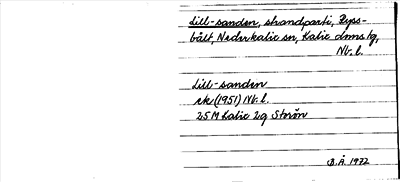 Lill-sanden, strandparti, Ryss-
bält, Nederkalix sn, Kalix dmstg,
Nb. l.
Lill-sanden
rk (1951) Nb. l.
25 M Kalix 2g Storön
B.Å. 1972